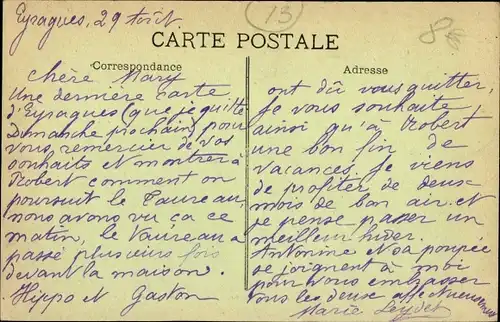 Eyragues, 29 Août.
13
8
CARTE POSTALE
Correspondance
Adresse
Chère Mary
Une dernière carte
d'Eyragues (que je quitte
Dimanche prochain) pour
vous remercier de vos
souhaits et montrer à
Robert comment on
poursuit le Taureau,
nous avons vu ça ce
matin, le Taureau a
passé plusieurs fois
devant la maison.
Hippo et Gaston
ont dû vous quitter,
Je vous souhaite,
ainsi qu'à Robert
une bon fin de
vacances, je viens
de profiter de deux
mois de bon air, et
je pense passer un
meilleur hiver.
Antonine et sa poupée
se joignent à moi
pour vous embrasser
tous les deux affectueusement
Marie